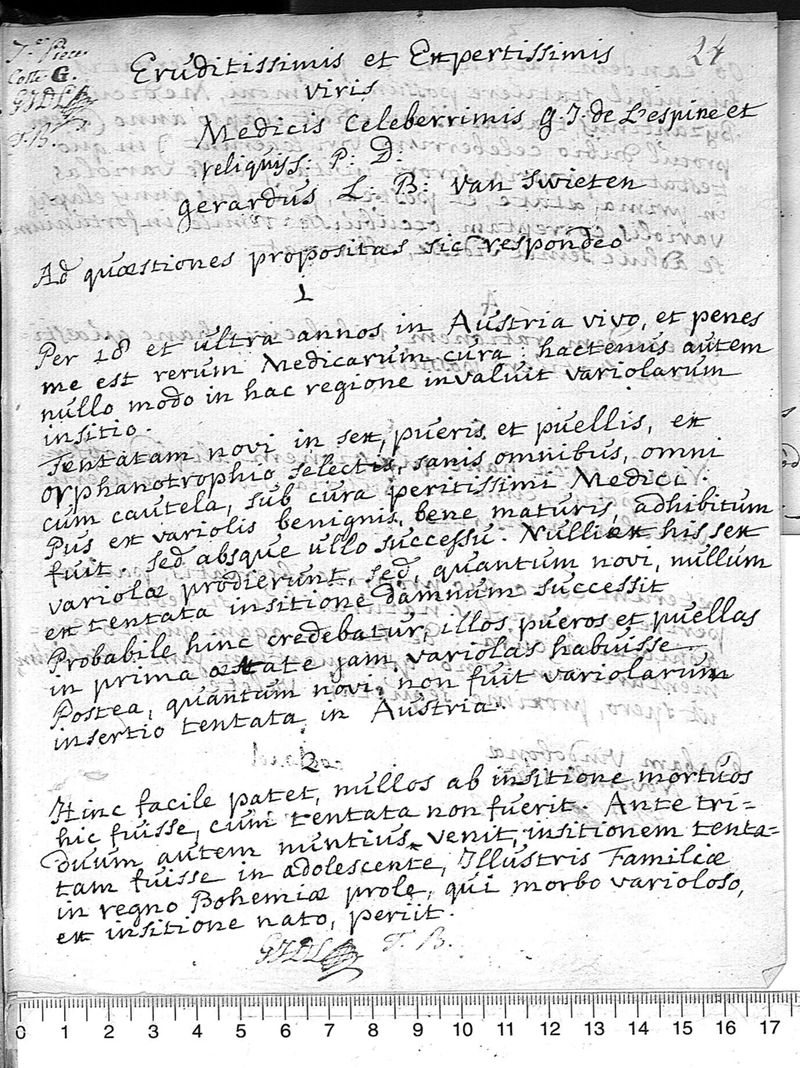 7e. Piece.
Cotte G.
GJDL
T.B.
24
Eruditissimis et Expertissimis
viris
Medicis Celeberrimis G. J. de L'espine et
reliquiss: P: D:
gerardus L: B: van Swieten
Ad quæstiones propositas sic respondeo
1
Per 18 et ultra annos in Austria vivo, et penes
me est rerum Medicarum cura: hactenus autem
nullo modo in hac regione invaluit variolarum
insitio.
Tentatam novi in sex, pueris et puellis, ex
orphanotrophio selectis, sanis omnibus, omni
cum cautela, sub cura peritissimi Medici.
Pus ex variolis benignis, bene maturis, adhibitum
fuit. sed absque ullo successu. Nulli ex his sex
variolæ prodierunt, sed, quantum novi, nullum
ex tentata insitione damnum successit
Probabile hinc credebatur, illos pueros et puellas
in prima ætate jam variolas habuisse.
Postea, quantum novi, non fuit variolarum
insertio tentata in Austria.
2
Hinc facile patet, nullos ab insitione mortuos
hic fuisse, cum tentata non fuerit. Ante tri=
duum autem nuntius venit, insitionem tenta=
tam fuisse in adolescente, Illustris Familiæ
in regno Bohemiæ prole, qui morbo varioloso,
ex insitione nato, periit.
GJDL T. B.
0 1 2 3 4 5 6 7 8 9 10 11 12 13 14 15 16 17